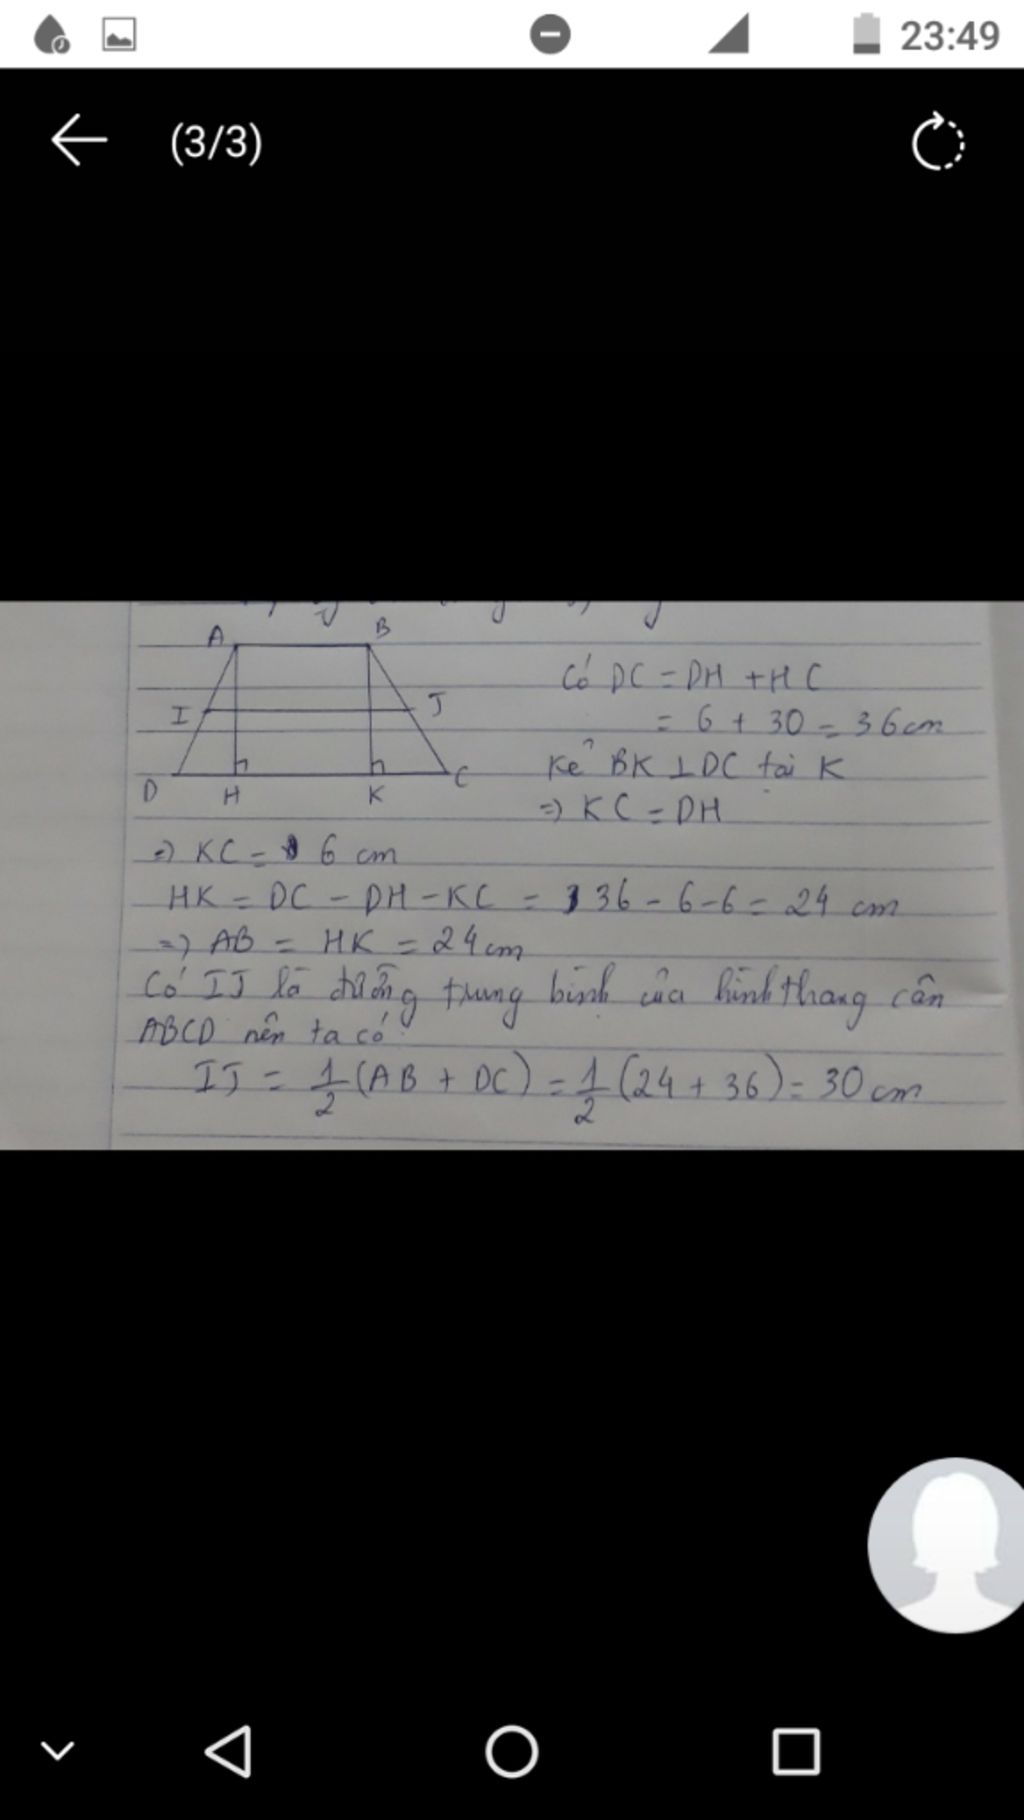 23:49
(3/3)
A B
I J
D H K C
Có DC = DH + HC
= 6 + 30 = 36cm
Kẻ BK ⊥ DC tại K
=> KC = DH
=> KC = 6 cm
HK = DC - DH - KC = 36 - 6 - 6 = 24 cm
=> AB = HK = 24cm
Có IJ là đường trung bình của hình thang cân
ABCD nên ta có
IJ = 1/2 (AB + DC) = 1/2 (24 + 36) = 30 cm